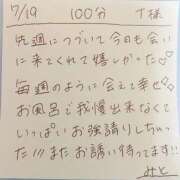 7/19 100分 T様
先週につづいて今日も会い
に来てくれて嬉しかった♡
毎週のように会えて幸せ♡
お風呂で我慢出来なくて
いっぱいお強請りしちゃっ
た///またお誘い待ってます!!
みと